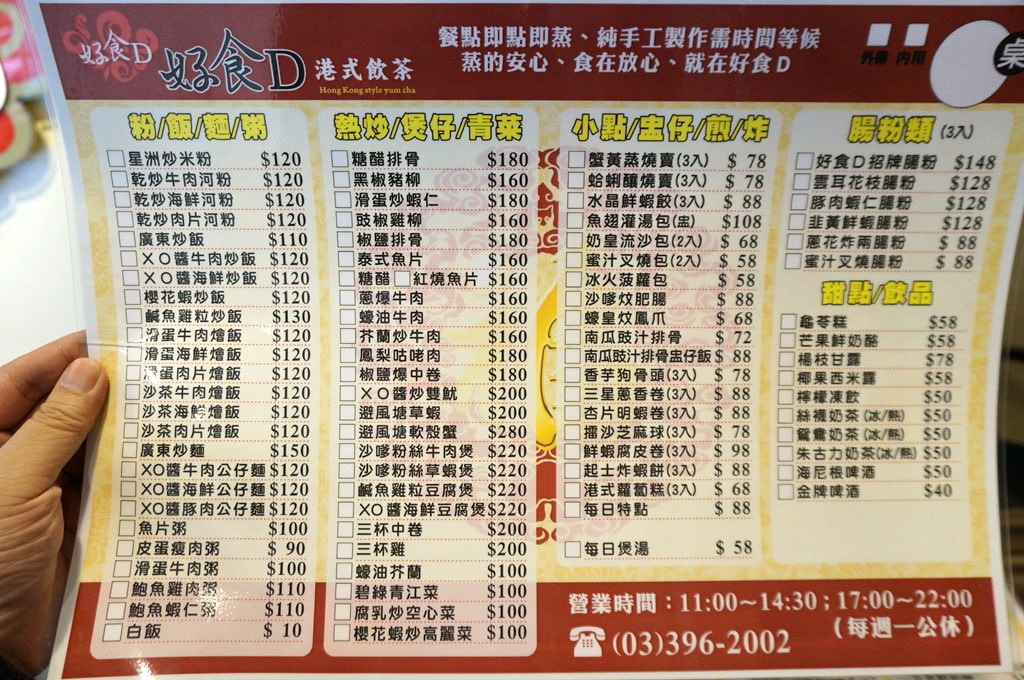 好食D 好食D 港式飲茶
Hong Kong style yum cha
餐點即點即蒸、純手工製作需時間等候
蒸的安心、食在放心、就在好食D
外帶 內用
桌
粉/飯/麵/粥
星洲炒米粉 $120
乾炒牛肉河粉 $120
乾炒海鮮河粉 $120
乾炒肉片河粉 $120
廣東炒飯 $110
XO醬牛肉炒飯 $120
XO醬海鮮炒飯 $120
櫻花蝦炒飯 $120
鹹魚雞粒炒飯 $130
滑蛋牛肉燴飯 $120
滑蛋海鮮燴飯 $120
滑蛋肉片燴飯 $120
沙茶牛肉燴飯 $120
沙茶海鮮燴飯 $120
沙茶肉片燴飯 $120
廣東炒麵 $150
XO醬牛肉公仔麵 $120
XO醬海鮮公仔麵 $120
XO醬豚肉公仔麵 $120
魚片粥 $100
皮蛋瘦肉粥 $ 90
滑蛋牛肉粥 $100
鮑魚雞肉粥 $110
鮑魚蝦仁粥 $110
白飯 $ 10
熱炒/煲仔/青菜
糖醋排骨 $180
黑椒豬柳 $160
滑蛋炒蝦仁 $180
豉椒雞柳 $160
椒鹽排骨 $180
泰式魚片 $160
糖醋 紅燒魚片 $160
蔥爆牛肉 $160
蠔油牛肉 $160
芥蘭炒牛肉 $160
鳳梨咕咾肉 $180
椒鹽爆中卷 $180
XO醬炒雙魷 $200
避風塘草蝦 $200
避風塘軟殼蟹 $280
沙嗲粉絲牛肉煲 $220
沙嗲粉絲草蝦煲 $220
鹹魚雞粒豆腐煲 $220
XO醬海鮮豆腐煲 $220
三杯中卷 $200
三杯雞 $200
蠔油芥蘭 $100
碧綠青江菜 $100
腐乳炒空心菜 $100
櫻花蝦炒高麗菜 $100
小點/盅仔/煎/炸
蟹黃蒸燒賣(3入) $ 78
蛤蜊釀燒賣(3入) $ 78
水晶鮮蝦餃(3入) $ 88
魚翅灌湯包(盅) $108
奶皇流沙包(2入) $ 68
蜜汁叉燒包(2入) $ 58
冰火菠蘿包 $ 58
沙嗲炆肥腸 $ 88
蠔皇炆鳳爪 $ 68
南瓜豉汁排骨 $ 72
南瓜豉汁排骨盅仔飯 $ 88
香芋狗骨頭(3入) $ 78
三星蔥香卷(3入) $ 88
杏片明蝦卷(3入) $ 88
擂沙芝麻球(3入) $ 78
鮮蝦腐皮卷(3入) $ 98
起士炸蝦餅(3入) $ 88
港式蘿蔔糕(3入) $ 68
每日特點 $ 88
每日煲湯 $ 58
腸粉類(3入)
好食D招牌腸粉 $148
雲耳花枝腸粉 $128
豚肉蝦仁腸粉 $128
韭黃鮮蝦腸粉 $128
蔥花炸兩腸粉 $ 88
蜜汁叉燒腸粉 $ 88
甜點/飲品
龜苓糕 $58
芒果鮮奶酪 $58
楊枝甘露 $78
椰果西米露 $58
檸檬凍飲 $50
絲襪奶茶(冰/熱) $50
鴛鴦奶茶(冰/熱) $50
朱古力奶茶(冰/熱) $50
海尼根啤酒 $50
金牌啤酒 $40
營業時間：11:00～14:30；17:00～22:00
(每週一公休)
(03)396-2002